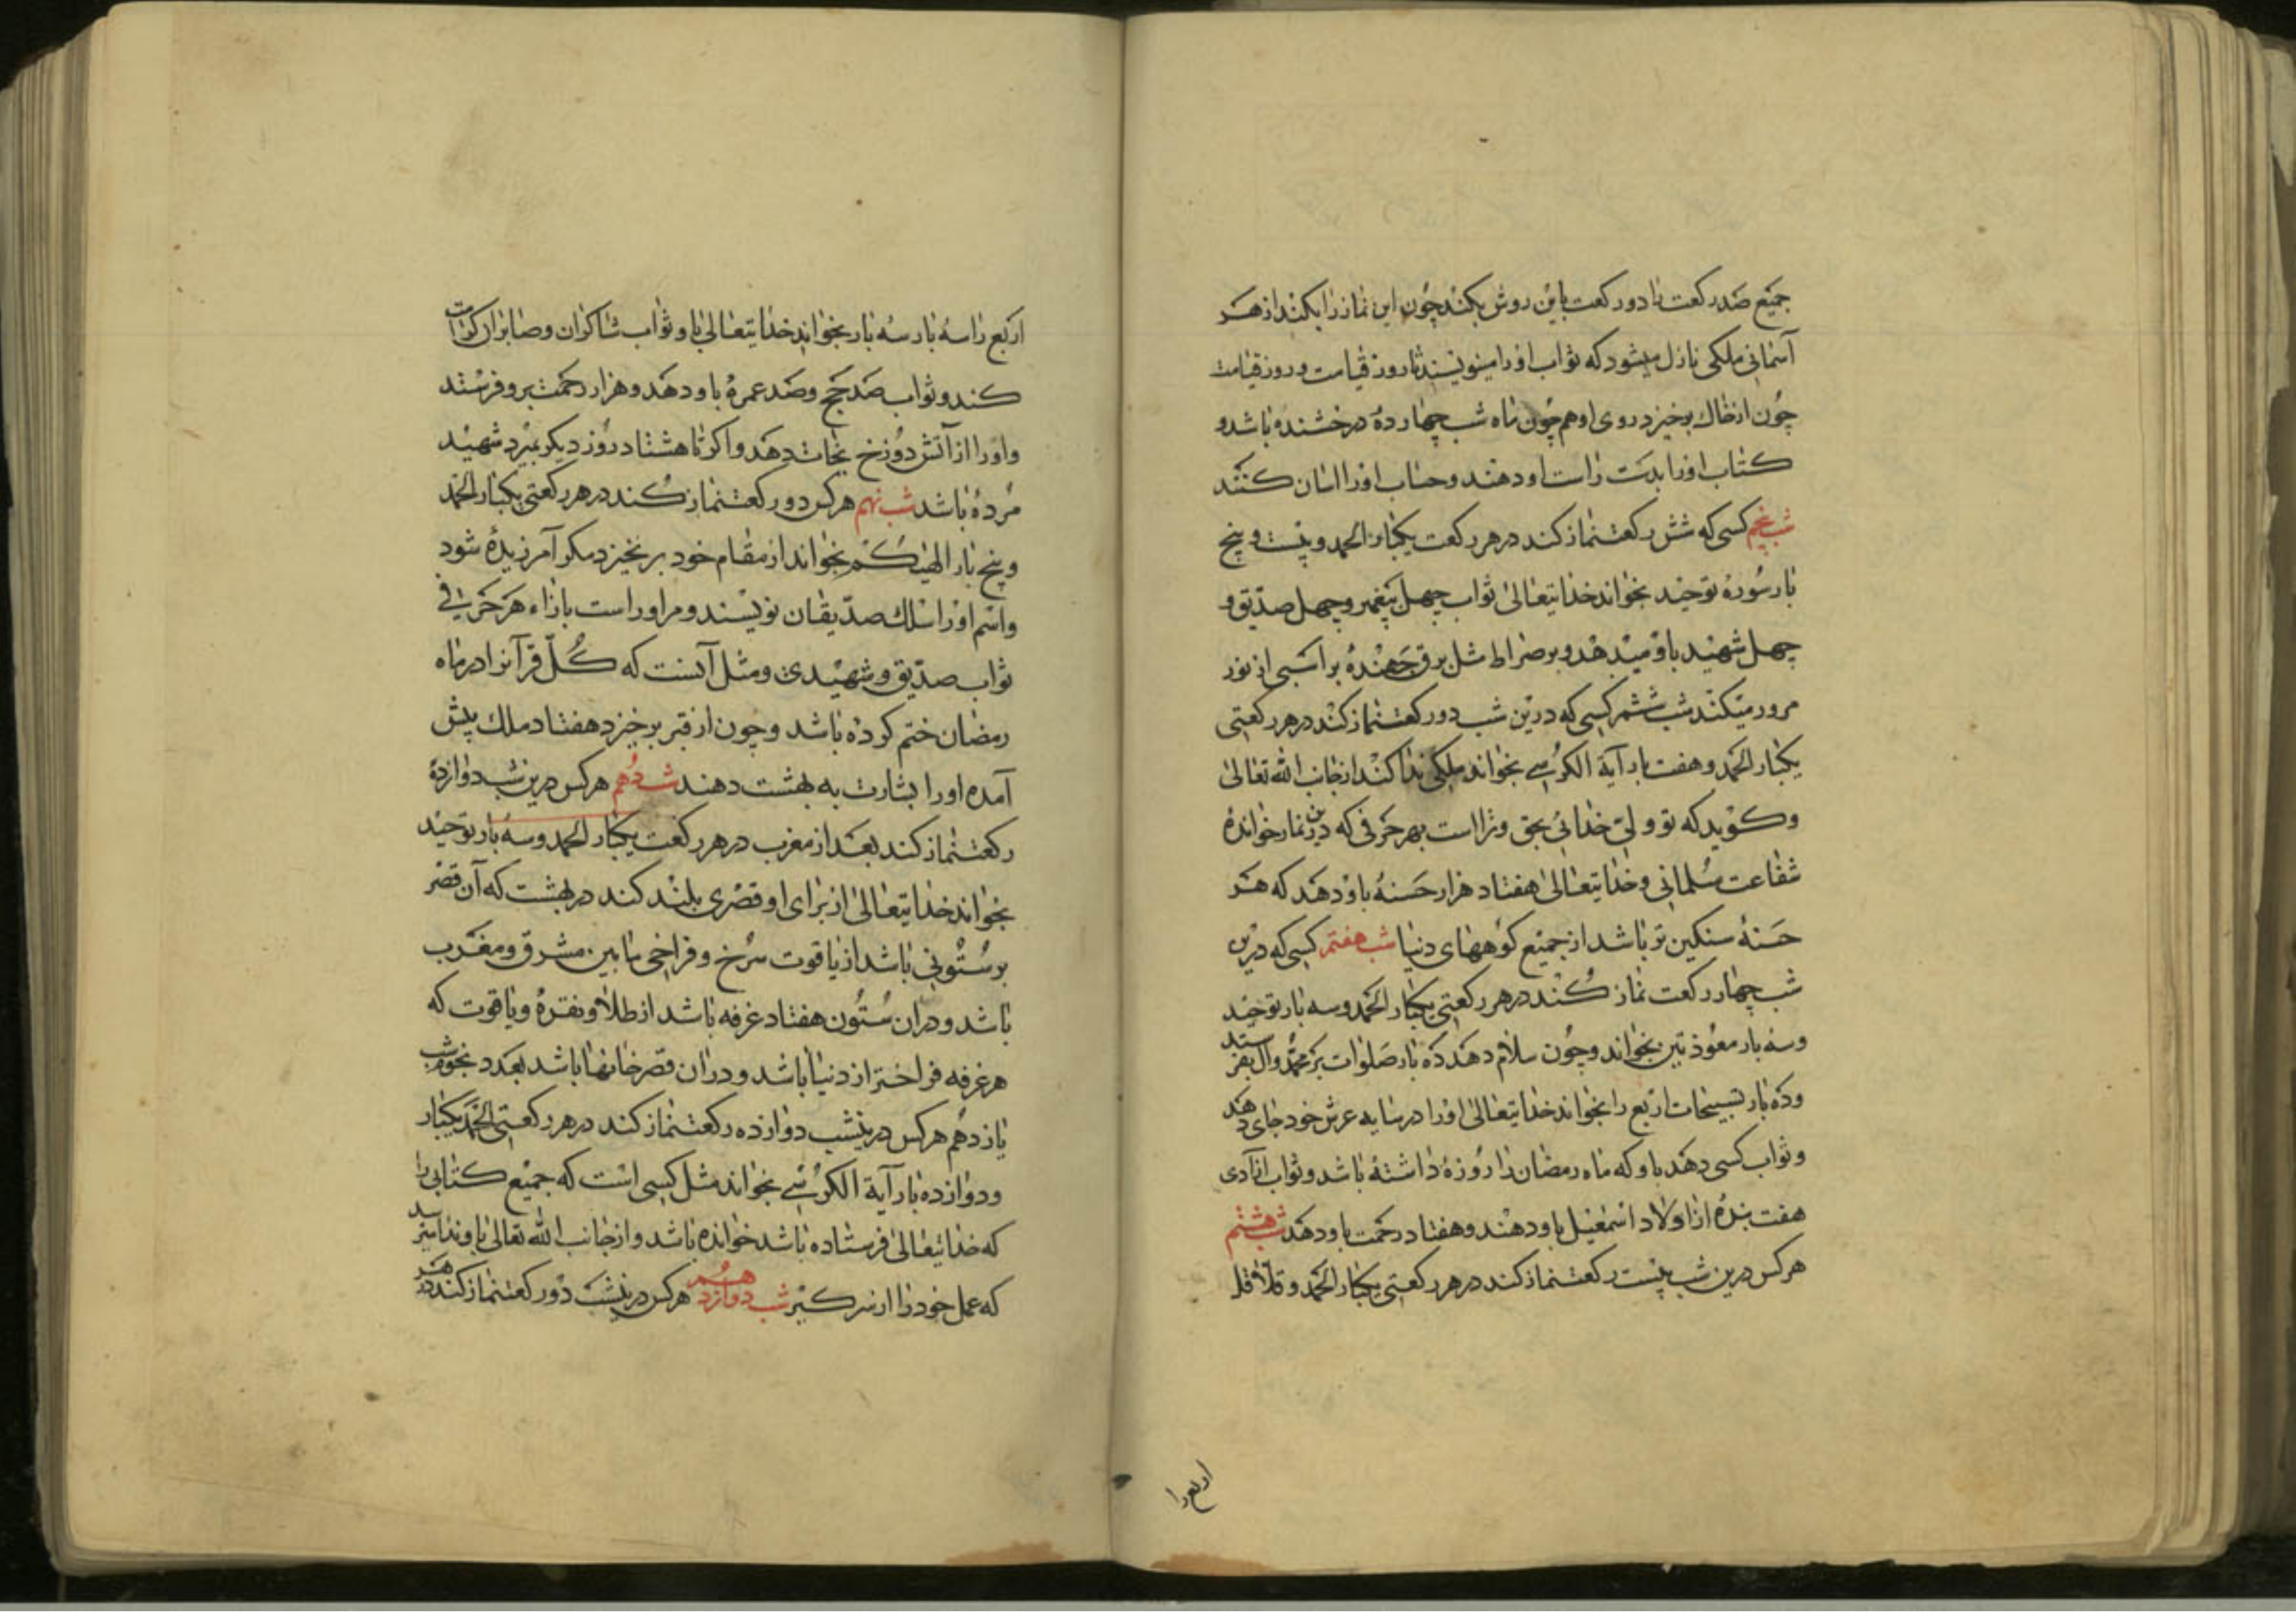 جمیع صد رکعت را دو رکعت باین روش بکند چون این نماز را بکند از هر
آسمانی ملکی نازل میشود که ثواب او را مینویسند تا روز قیامت و روز قیامت
چون از خاك برخیزد روی او همچون ماه شب چهارده درخشنده باشد و
کتاب او را بدست راست او دهند و حساب او را اسان کنند
شب پنجم کسی که شش رکعت نماز کند در هر رکعت یکبار الحمد و بیست و پنج
بار سوره توحید بخواند خدایتعالی ثواب چهل پیغمبر و چهل صدیق و
چهل شهید باو میدهد و بر صراط مثل برق جهنده بر اسبی از نور
مرور میکند شب ششم کسی که درین شب دو رکعت نماز کند در هر رکعتی
یکبار الحمد و هفت بار آیة الکرسی بخواند ملکی ندا کند از جانب الله تعالی
و کوید که تو ولی خدائی بحق و ترا است بهر حرفی که درین نماز خوانده
شفاعت مسلمانی و خدایتعالی هفتاد هزار حسنه باو دهد که هر
حسنه سنکین تر باشد از جمیع کوههای دنیا شب هفتم کسی که درین
شب چهار رکعت نماز کند در هر رکعتی یکبار الحمد و سه بار توحید
و سه بار معوذتین بخواند و چون سلام دهد ده بار صلوات بر محمد و آل بفرستد
و ده بار تسبیحات اربع را بخواند خدایتعالی او را در سایه عرش خود جای دهد
و ثواب کسی دهد باو که ماه رمضان را روزه داشته باشد و ثواب آزادی
هفت بنده از اولاد اسمعیل باو دهند و هفتاد رحمت باو دهد شب هشتم
هر کس درین شب بیست رکعت نماز کند در هر رکعتی یکبار الحمد و قلاقل
اربع را
اربع را سه بار سه بار بخواند خدایتعالی باو ثواب شاکران و صابران کرامت
کند و ثواب صد حج و صد عمره باو دهد و هزار رحمت برو فرستد
و او را از آتش دوزخ نجات دهد و اکر تا هشتاد روز دیکر بمیرد شهید
مرده باشد شب نهم هر کس دو رکعت نماز کند در هر رکعتی یکبار الحمد
و پنج بار الهیکم بخواند از مقام خود برنخیزد مکر آمرزیده شود
و اسم او را سلك صدیقان نویسند و مر او راست بازاء هر حرفی
ثواب صدیق و شهیدی و مثل آنست که کل قرآنرا در ماه
رمضان ختم کرده باشد و چون از قبر برخیزد هفتاد ملك پیش
آمده او را بشارت به بهشت دهند شب دهم هر کس درین شب دوازده
رکعت نماز کند بعد از مغرب در هر رکعت یکبار الحمد و سه بار توحید
بخواند خدایتعالی از برای او قصری بلند کند در بهشت که آن قصر
بر ستونی باشد از یاقوت سرخ و فراخی مابین مشرق و مغرب
باشد و در ان ستون هفتاد غرفه باشد از طلا و نقره و یاقوت که
هر غرفه فراختر از دنیا باشد و در ان قصر خانها باشد بعدد نجوم شب
یازدهم هر کس درینشب دوازده رکعت نماز کند در هر رکعتی الحمد یکبار
و دوازده بار آیة الکرسی بخواند مثل کسی است که جمیع کتابی را
که خدایتعالی فرستاده باشد خوانده باشد و از جانب الله تعالی باو ندا میرسد
که عمل خود را از سر کیر شب دوازدهم هر کس درینشب دو رکعت نماز کند در هر